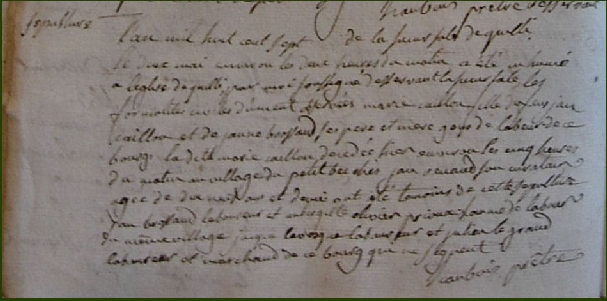 naubois prêtre desservant
sepulture
l'an mil huit cent sept de la succursale de quilli
le douze mai environ les deux heures du matin a été inhumé
a l'eglise de quilli, par moi soussigné desservant la succursale, les
formalités civiles dûment observées marie caillon fille de feu jan
caillon et de janne brossaud, ses pere et mere gens de labeur de ce
bourg la dite marie caillon décédée hier environ les cinq heures
du matin au village du petit jan renaud son curateur
agee de dix neuf ans et demi ont été temoins de cette sepulture
jan brossaud laboureur et olivier prime homme de labeur
du même village jaque laboureur et julien le grand
laboureur et marchand de ce bourg qui ne signent
naubois prêtre